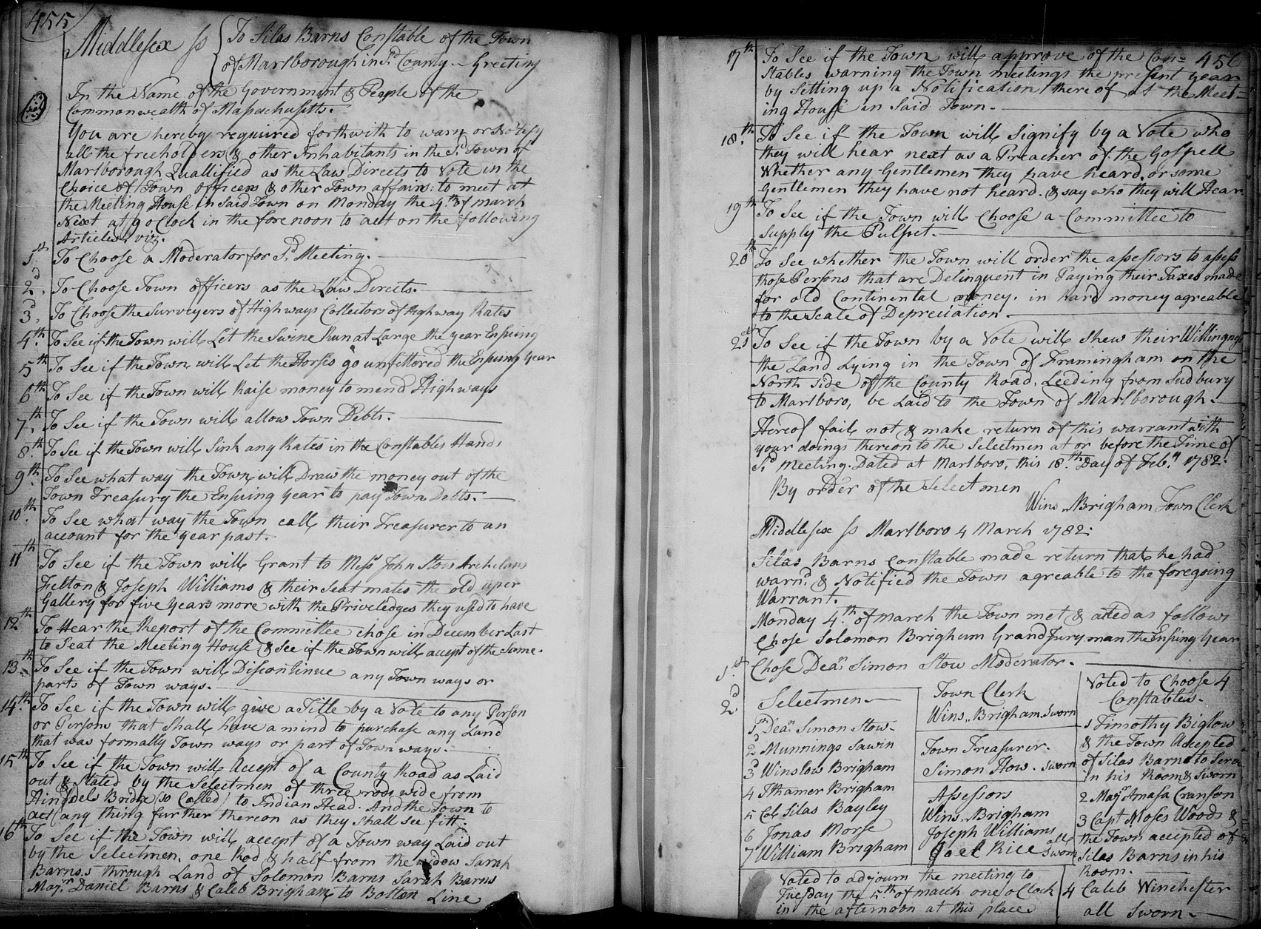 455
Middlesex ss To Silas Barns Constable of the Town
of Marlborough in Sd. County — Greeting
In the Name of the Government & People of the
Commonwealth of Massachusitts.
You are hereby requiured forthwith to warn or Notify
all the freeholders & other Inhabitants in the Sd. Town of
Marlborough Quallified as the Law Directs to Vote in the
Choice of Town officers & other Town affairs: to meet at
the Meeting House in Said Town on Monday the 4th. of march
Next at 9 o Clock in the forenoon to act on the following
Articles viz.
1st To Choose a Moderator for Sd. Meeting.
2d. To Choose Town officers as the Law Directs.
3d. To Choose the Surveyers of High ways Collectors of Highway Rates
4th. To See if the Town will Let the Swine Run at Large the year Ensuing
5th To See if the Town will Let the Horses go unfettered the Ensuing Year
6th To See if the Town will Raise money to mend Highways
7th. To See if the Town will allow Town Debts.
8th To See if the Town will Sink any Rates in the Constables Hands
9th. To See what way the Town will Draw the money out of the
Town Treasury the Ensuing year to pay Town Debts.
10th. To See what way the Town call their Treasurer to an
account for the year past.
11th To See if the Town will Grant to Messs John Stow Archelaus
Felton & Joseph Williams & their Seat mates the old uper
Gallery for five Years more with the Priveledges they used to have
12th To Hear the Report of the Committee chose in December Last
to Seat the Meeting House & See if the Town will accept of the Same.
13th To See if the Town will Discontinue any Town ways or
parts of Town ways.
14th To See if the Town will give a Title by a Vote to any Person
or Persons that Shall have a mind to purchase any Land
that was formally Town ways or part of Town ways.
15th To See if the Town will Accept of a County Road as Laid
out & Stated by the Selectmen of three rods wide from
Bridge (so Called) to Indian Head. And the Town to
act any thing further thereon as they Shall See fitt.
16th To See if the Town will accept of a Town way Laid out
by the Selectmen, one Rod & half from the widow Sarah
Barns,s through Land of Solomon Barns Sarah Barns
Majr Daniel Barns & Caleb Brigham, to Bolton Line
456
17th To See if the Town will approve of the Con=
stables warning the Town meetings the present year
by Setting up a Notification thereof at the Meet=
ing House in Said Town.
18th. To See if the Town will Signify by a Vote who
they will hear next as a Preacher of the Gospell
Whether any Gentlemen they have heard, or some
Gentlemen they have not heard. & say who they will Hear
19th To See if the Town will Choose a Committee to
Supply the Pulpet.
20th To See whether the Town will order the assessors to assess
those Persons that are Delinquent in Paying their Taxes made
for old Continental money. in hard money agreable
to the Scale of Depreciation.
21st To See if the Town by a Vote will Shew their Willingness
the Land Lying in the Town of Framingham on the
North Side of the County Road, Leeding from Sudbury
to Marlboro, be Laid to the Town of Marlborough.
Hereof fail not & make return of this warrant with
your doings thereon to the Selectmen at or before the Time of
Sd. Meeting. Dated at Marlboro, this 18th. Day of Feby. 1782.
By order of the Selectmen
Wins. Brigham Town Clerk
Middlesex ss Marlboro 4 March 1782:
Silas Barns Constable made return that he had
warnd. & Notified the Town agreable to the foregoing
Warrant.
Monday 4th. of march the Town met & acted as follows
Chose Solomon Brigham Grand Jury man the Ensuing Year
1st. Chose Dean. Simon Stow Moderator.
2d. Selectmen
1 Dean. Simon Stow
2 Munnings Sawin
3 Winslow Brigham
4 Ithamer Brigham
5 Col. Silas Bayley
6 Jonas Morse
7 William Brigham
Town Clerk
Wins. Brigham Sworn
Town Treasurer.
Simon Stow. Sworn
Assessors
Wins. Brigham
Joseph Williams
Joel Rice all Sworn
Voted to Choose 4
Constables.
1 Timothy Biglow
& the Town Accepted
of Silas Barns to Serve
in his Room & Sworn
2 Majr Amasa Cranson
3 Capt Moses Woods &
the Town accepted of
Silas Barns in his
Room.
4 Caleb Winchester
all Sworn.
Voted to adjourn the meeting to
Tuesday the 5th. of march one o Clock
in the afternoon at this place